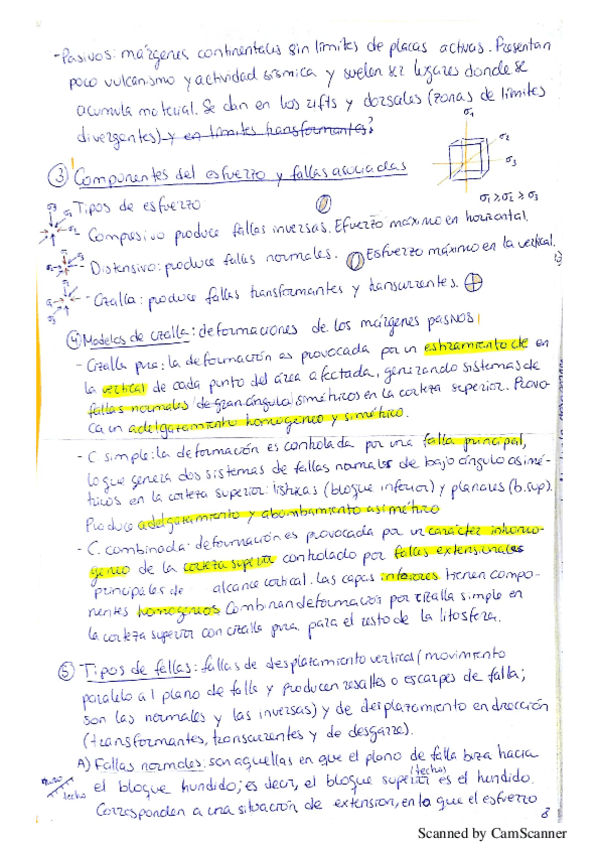 - Pasivos: márgenes continentales sin límites de placas activas. Presentan
poco vulcanismo y actividad sísmica y suelen ser lugares donde se
acumula material. Se dan en los rifts y dorsales (zonas de límites
divergentes) y en límites transformantes?
σ1
σ2
σ3
σ1 ≥ σ2 ≥ σ3
③ Componentes del esfuerzo y fallas asociadas
Tipos de esfuerzo
- Compresivo produce fallas inversas. Efuerzo máximo en horizontal.
- Distensivo: produce fallas normales. Esfuerzo máximo en la vertical.
- Cizalla: produce fallas transformantes y transcurrentes.
④ Modelos de cizalla: deformaciones de los márgenes pasivos
- Cizalla pura: la deformación es provocada por un estiramiento de en
la vertical de cada punto del área afectada, generando sistemas de
fallas normales de gran ángulo simétricos en la corteza superior. Provo-
ca un adelgazamiento homogéneo y simétrico.
- C simple: la deformación es controlada por una falla principal,
lo que genera dos sistemas de fallas normales de bajo ángulo asimé-
tricos en la corteza superior: lístricas (bloque inferior) y planares (b. sup).
Produce adelgazamiento y abombamiento asimétrico
- C. combinada: deformación es provocada por un carácter inhomo-
géneo de la corteza superior controlado por fallas extensionales
principales de alcance cortical. Las capas inferiores tienen compo-
nentes homogéneos Combinan deformación por cizalla simple en
la corteza superior con cizalla pura para el resto de la litosfera.
⑤ Tipos de fallas: fallas de desplazamiento vertical (movimiento
paralelo al plano de falla y producen resaltes o escarpes de falla;
son las normales y las inversas) y de desplazamiento en dirección
(transformantes, transcurrentes y de desgarre).
A) Fallas normales: son aquellas en que el plano de falla buza hacia
muro
techo
el bloque hundido; es decir, el bloque superior (techo) es el hundido.
Corresponden a una situación de extensión, en la que el esfuerzo
8
Scanned by CamScanner